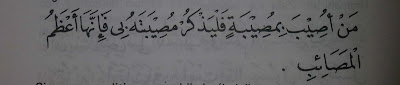 مَنْ أُصِيْبَ بِمُصِيْبَةٍ فَلْيَذْكُرْ مُصِيْبَتَهُ بِى فَإِنَّهَا أَعْظَمُ
الْمَصَائِبِ .